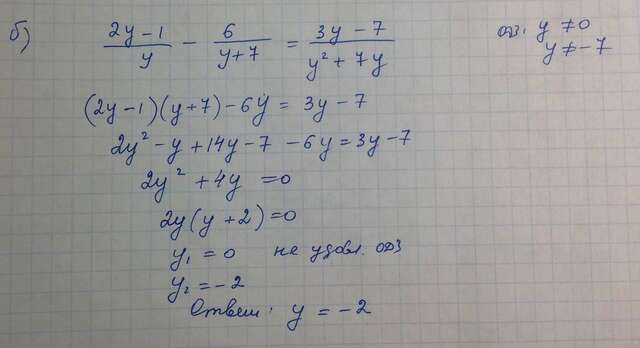 б) (2y-1)/y - 6/(y+7) = (3y-7)/(y²+7y) ОДЗ: y ≠ 0
y ≠ -7
(2y-1)(y+7)-6y = 3y-7
2y²-y+14y-7-6y=3y-7
2y²+4y=0
2y(y+2)=0
y₁ = 0 не удовл. ОДЗ
y₂ = -2
Ответ: y = -2